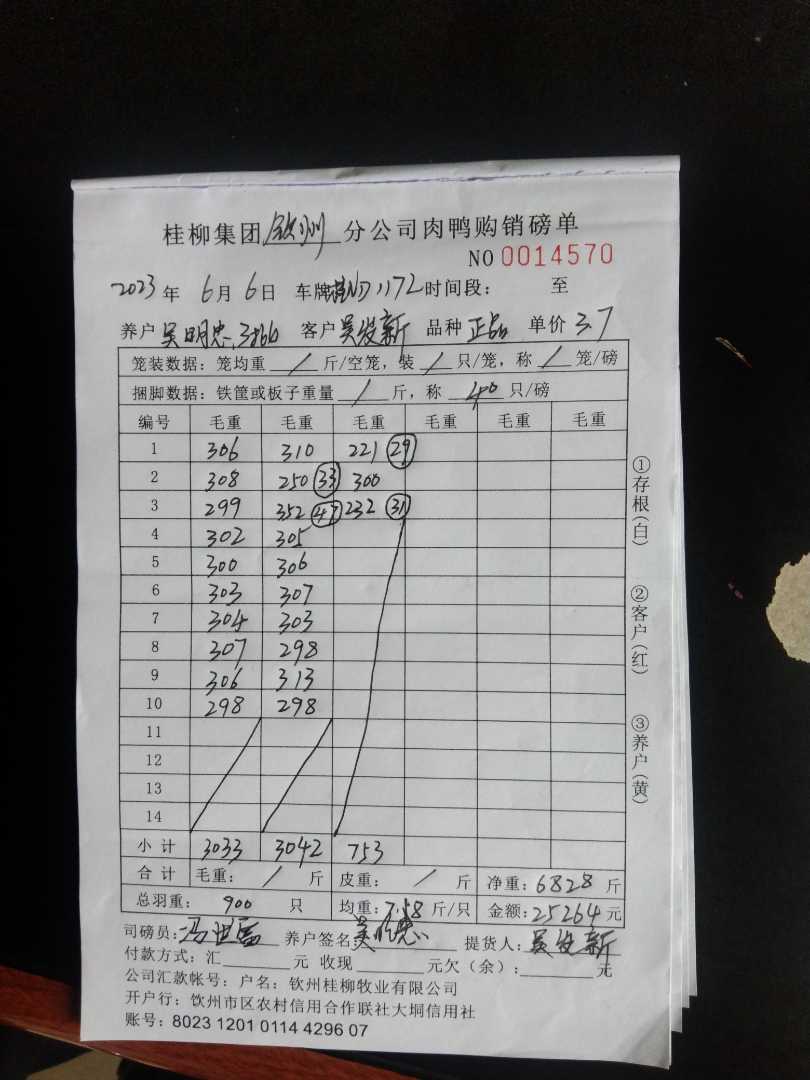 桂柳集团 钦州 分公司肉鸭购销磅单
NO 0014570
2023 年 6 月 6 日 车牌: 1172 时间段: 至
养户 吴明忠 客户 吴发新 品种 正品 单价 3.7
笼装数据:笼均重 / 斤/空笼,装 / 只/笼,称 / 笼/磅
捆脚数据:铁筐或板子重量 / 斤,称 40 只/磅
编号 毛重 毛重 毛重 毛重 毛重 毛重
1 306 310 221 29
2 308 250 33 300
3 299 352 47 232 31
4 302 305
5 300 306
6 303 307
7 304 303
8 307 298
9 306 313
10 298 298
11
12
13
14
小计 3033 3042 753
合计 毛重: / 斤 皮重: / 斤 净重: 6828 斤
总羽重: 900 只 均重: 7.58 斤/只 金额: 25264 元
司磅员: 养户签名 吴明忠 提货人: 吴发新
付款方式:汇 元 收现 元欠(余): 元
公司汇款帐号:户名:钦州桂柳牧业有限公司
开户行:饮州市区农村信用合作联社大垌信用社
账号:8023 1201 0114 4296 07
①存根(白)
②客户(红)
③养户(黄)